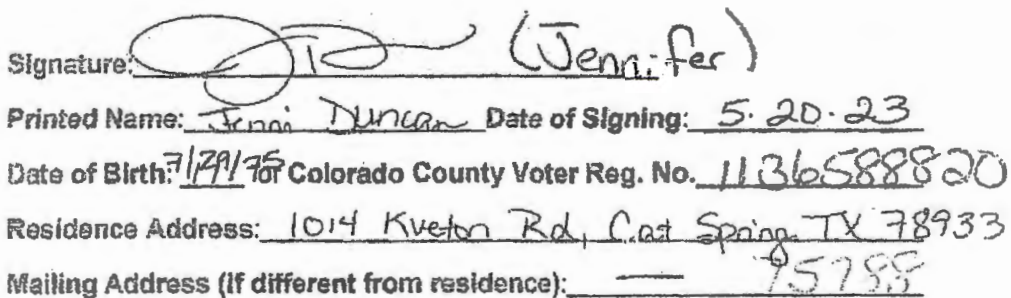 Signature: (Jennifer)
Printed Name: Jenni Duncan Date of Signing: 5.20.23
Date of Birth: 7/29/75 or Colorado County Voter Reg. No. 1136588820
Residence Address: 1014 Kveton Rd, Cat Spring TX 78933
Mailing Address (if different from residence): — 75788